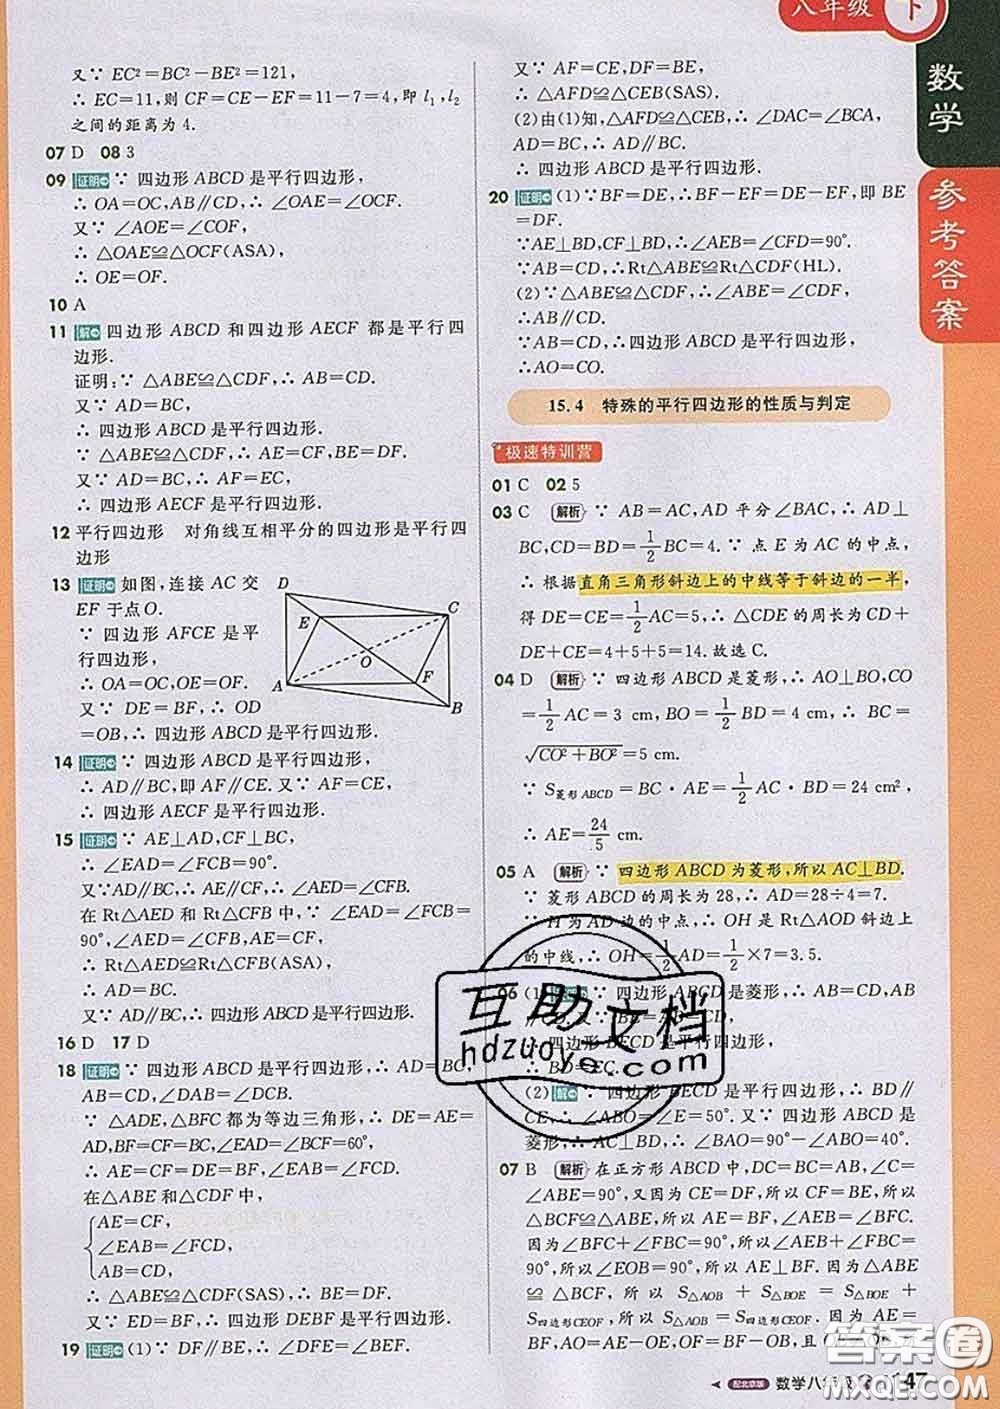 八年级 下
数学
参考答案
又∵ EC²=BC²-BE²=121,
∴ EC=11,则 CF=CE-EF=11-7=4,即 l₁,l₂
之间的距离为 4.
07 D 08 3
09 证明 ∵ 四边形 ABCD 是平行四边形,
∴ OA=OC,AB∥CD,∴ ∠OAE=∠OCF.
又∵ ∠AOE=∠COF,
∴ △OAE≌△OCF(ASA),
∴ OE=OF.
10 A
11 解 四边形 ABCD 和四边形 AECF 都是平行四
边形.
证明:∵ △ABE≌△CDF,∴ AB=CD.
又∵ AD=BC,
∴ 四边形 ABCD 是平行四边形.
∵ △ABE≌△CDF,∴ AE=CF,BE=DF.
又∵ AD=BC,∴ AF=EC,
∴ 四边形 AECF 是平行四边形.
12 平行四边形 对角线互相平分的四边形是平行四
边形
13 证明 如图,连接 AC 交
EF 于点 O.
∵ 四边形 AFCE 是平
行四边形,
∴ OA=OC,OE=OF.
又∵ DE=BF,∴ OD
=OB,∴ 四边形 ABCD 是平行四边形.
D
C
E
O
A
F
B
14 证明 ∵ 四边形 ABCD 是平行四边形,
∴ AD∥BC,即 AF∥CE.又∵ AF=CE,
∴ 四边形 AECF 是平行四边形.
15 证明 ∵ AE⊥AD,CF⊥BC,
∴ ∠EAD=∠FCB=90°.
又∵AD∥BC,∴∠ADE=∠CBF.
在 Rt△AED 和 Rt△CFB 中,∵ ∠EAD=∠FCB=
90°,∠AED=∠CFB,AE=CF,
∴ Rt△AED≌Rt△CFB(ASA),
∴ AD=BC.
又∵ AD∥BC,∴ 四边形 ABCD 是平行四边形.
16 D 17 D
18 证明 ∵ 四边形 ABCD 是平行四边形,∴ AD=BC,
AB=CD,∠DAB=∠DCB.
∵ △ADE,△BFC 都为等边三角形,∴ DE=AE=
AD,BF=CF=BC,∠DAE=∠BCF=60°,
∴ AE=CF=DE=BF,∠EAB=∠FCD.
在△ABE 和△CDF 中,
AE=CF,
∠EAB=∠FCD,
AB=CD,
∴ △ABE≌△CDF(SAS),∴ BE=DF.
又∵ ED=BF,∴ 四边形 DEBF 是平行四边形.
19 证明 (1)∵ DF∥BE,∴ ∠DFE=∠BEF.
又∵ AF=CE,DF=BE,
∴ △AFD≌△CEB(SAS).
(2)由(1)知,△AFD≌△CEB,∴ ∠DAC=∠BCA,
AD=BC,∴ AD∥BC.
∴ 四边形 ABCD 是平行四边形.
20 证明 (1)∵BF=DE,∴BF-EF=DE-EF,即 BE
=DF.
∵AE⊥BD,CF⊥BD,∴∠AEB=∠CFD=90°.
∵AB=CD,∴Rt△ABE≌Rt△CDF(HL).
(2)∵△ABE≌△CDF,∴∠ABE=∠CDF,
∴AB∥CD.
∵AB=CD,∴四边形 ABCD 是平行四边形,
∴AO=CO.
15.4 特殊的平行四边形的性质与判定
极速特训营
01 C 02 5
03 C 解析 ∵ AB=AC,AD 平分∠BAC,∴ AD⊥
BC,CD=BD=1/2BC=4.∵ 点 E 为 AC 的中点,
∴ 根据直角三角形斜边上的中线等于斜边的一半,
得 DE=CE=1/2AC=5,∴ △CDE 的周长为 CD+
DE+CE=4+5+5=14.故选 C.
04 D 解析 ∵ 四边形 ABCD 是菱形,∴ AO⊥BO,CO
=1/2AC=3 cm,BO=1/2BD=4 cm,∴ BC=
√(CO²+BO²)=5 cm.
∵ S菱形ABCD=BC·AE=1/2AC·BD=24 cm²,
∴ AE=24/5 cm.
05 A 解析 ∵ 四边形 ABCD 为菱形,所以 AC⊥BD.
∵ 菱形 ABCD 的周长为 28,∴ AD=28÷4=7.
∵ H 为 AD 边的中点,∴ OH 是 Rt△AOD 斜边上
的中线,∴ OH=1/2AD=1/2×7=3.5.
06 (1) 证明 ∵ 四边形 ABCD 是菱形,∴ AB=CD,AB
∥CD.又∵ 四边形 BECD 是平行四边形,
∴ BD=EC.
(2) 解 ∵ 四边形 BECD 是平行四边形,∴ BD∥
CE,∴ ∠ABO=∠E=50°.又∵ 四边形 ABCD 是
菱形,∴ AC⊥BD,∴ ∠BAO=90°-∠ABO=40°.
07 B 解析 在正方形 ABCD 中,DC=BC=AB,∠C=
∠ABE=90°,又因为 CE=DF,所以 CF=BE,所以
△BCF≌△ABE,所以 AE=BF,∠AEB=∠BFC.
因为∠BFC+∠FBC=90°,所以∠AEB+∠FBC=
90°,所以∠EOB=90°,所以 AE⊥BF.因为△ABE
≌△BCF,所以 S△AOB+S△BOE=S△BOE+
S四边形CEOF,所以 S△AOB=S四边形CEOF.因为 AE=
BF,AO=AE-OE,OF=BF-OB,且
配北京版 数学八年级 下 147
互助文档
hdzuoye.com
答案圈
MXQE.COM